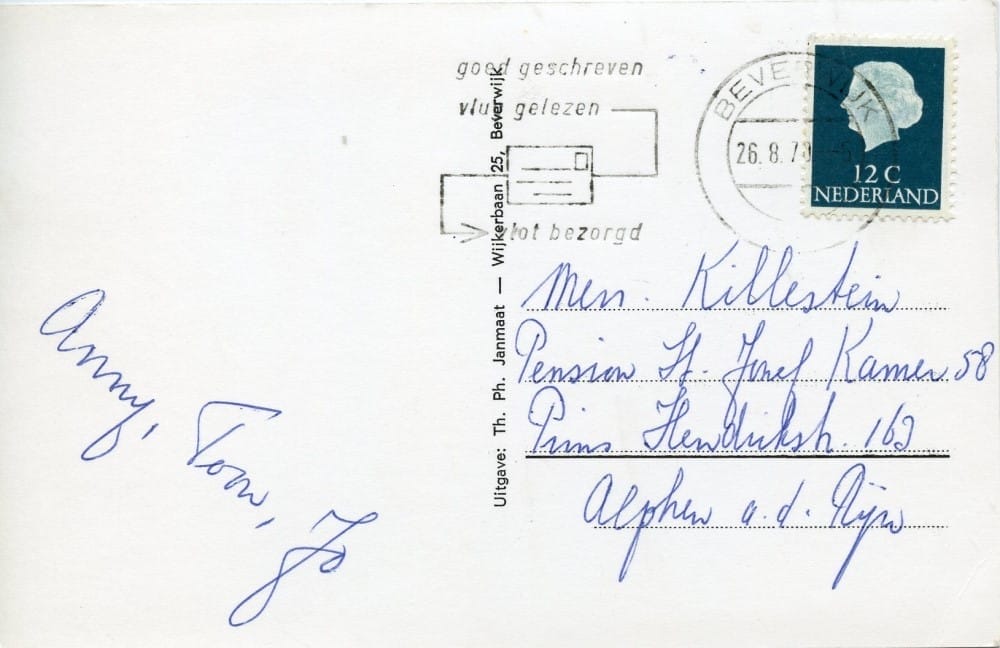 goed geschreven
vlug gelezen
vlot bezorgd
BEVERWIJK
26.8.70
12 C
NEDERLAND
Uitgave: Th. Ph. Janmaat — Wijkerbaan 25, Beverwijk
Anny,
Toon,
Jo
Mevr. Killestein
Pension St. Josef Kamer 58
Prins Hendrikstr. 163
Alphen a.d. Rijn